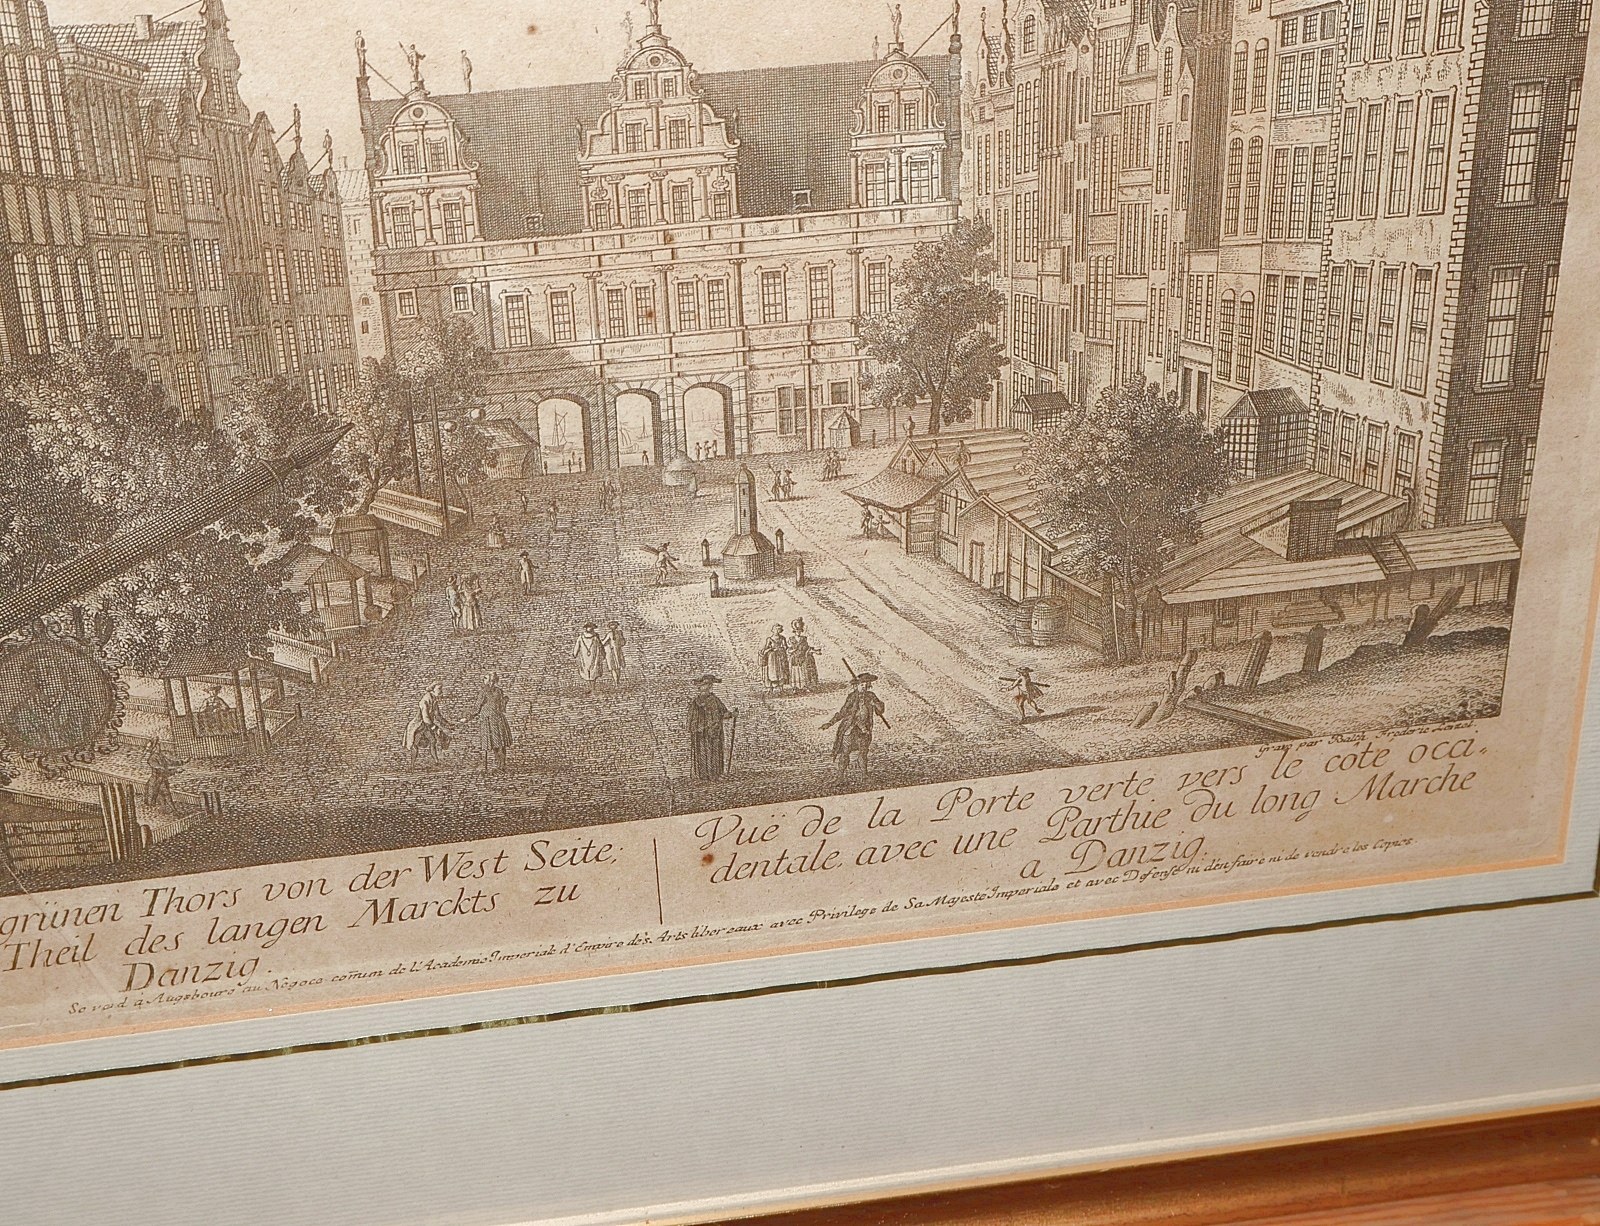 Gravé par Balth. Frederic Leizel
grünen Thors von der West Seite,
Theil des langen Marckts zu
Danzig.
Vuë de la Porte verte vers le côte occi-
dentale, avec une Parthie du long Marche
a Danzig.
Se vend à Augsbourg au Negoce comun de l'Academie Imperiale d'Empire des Arts libereaux avec Privilege de Sa Majesté Imperiale et avec Defense ni d'en faire ni de vendre les Copies.